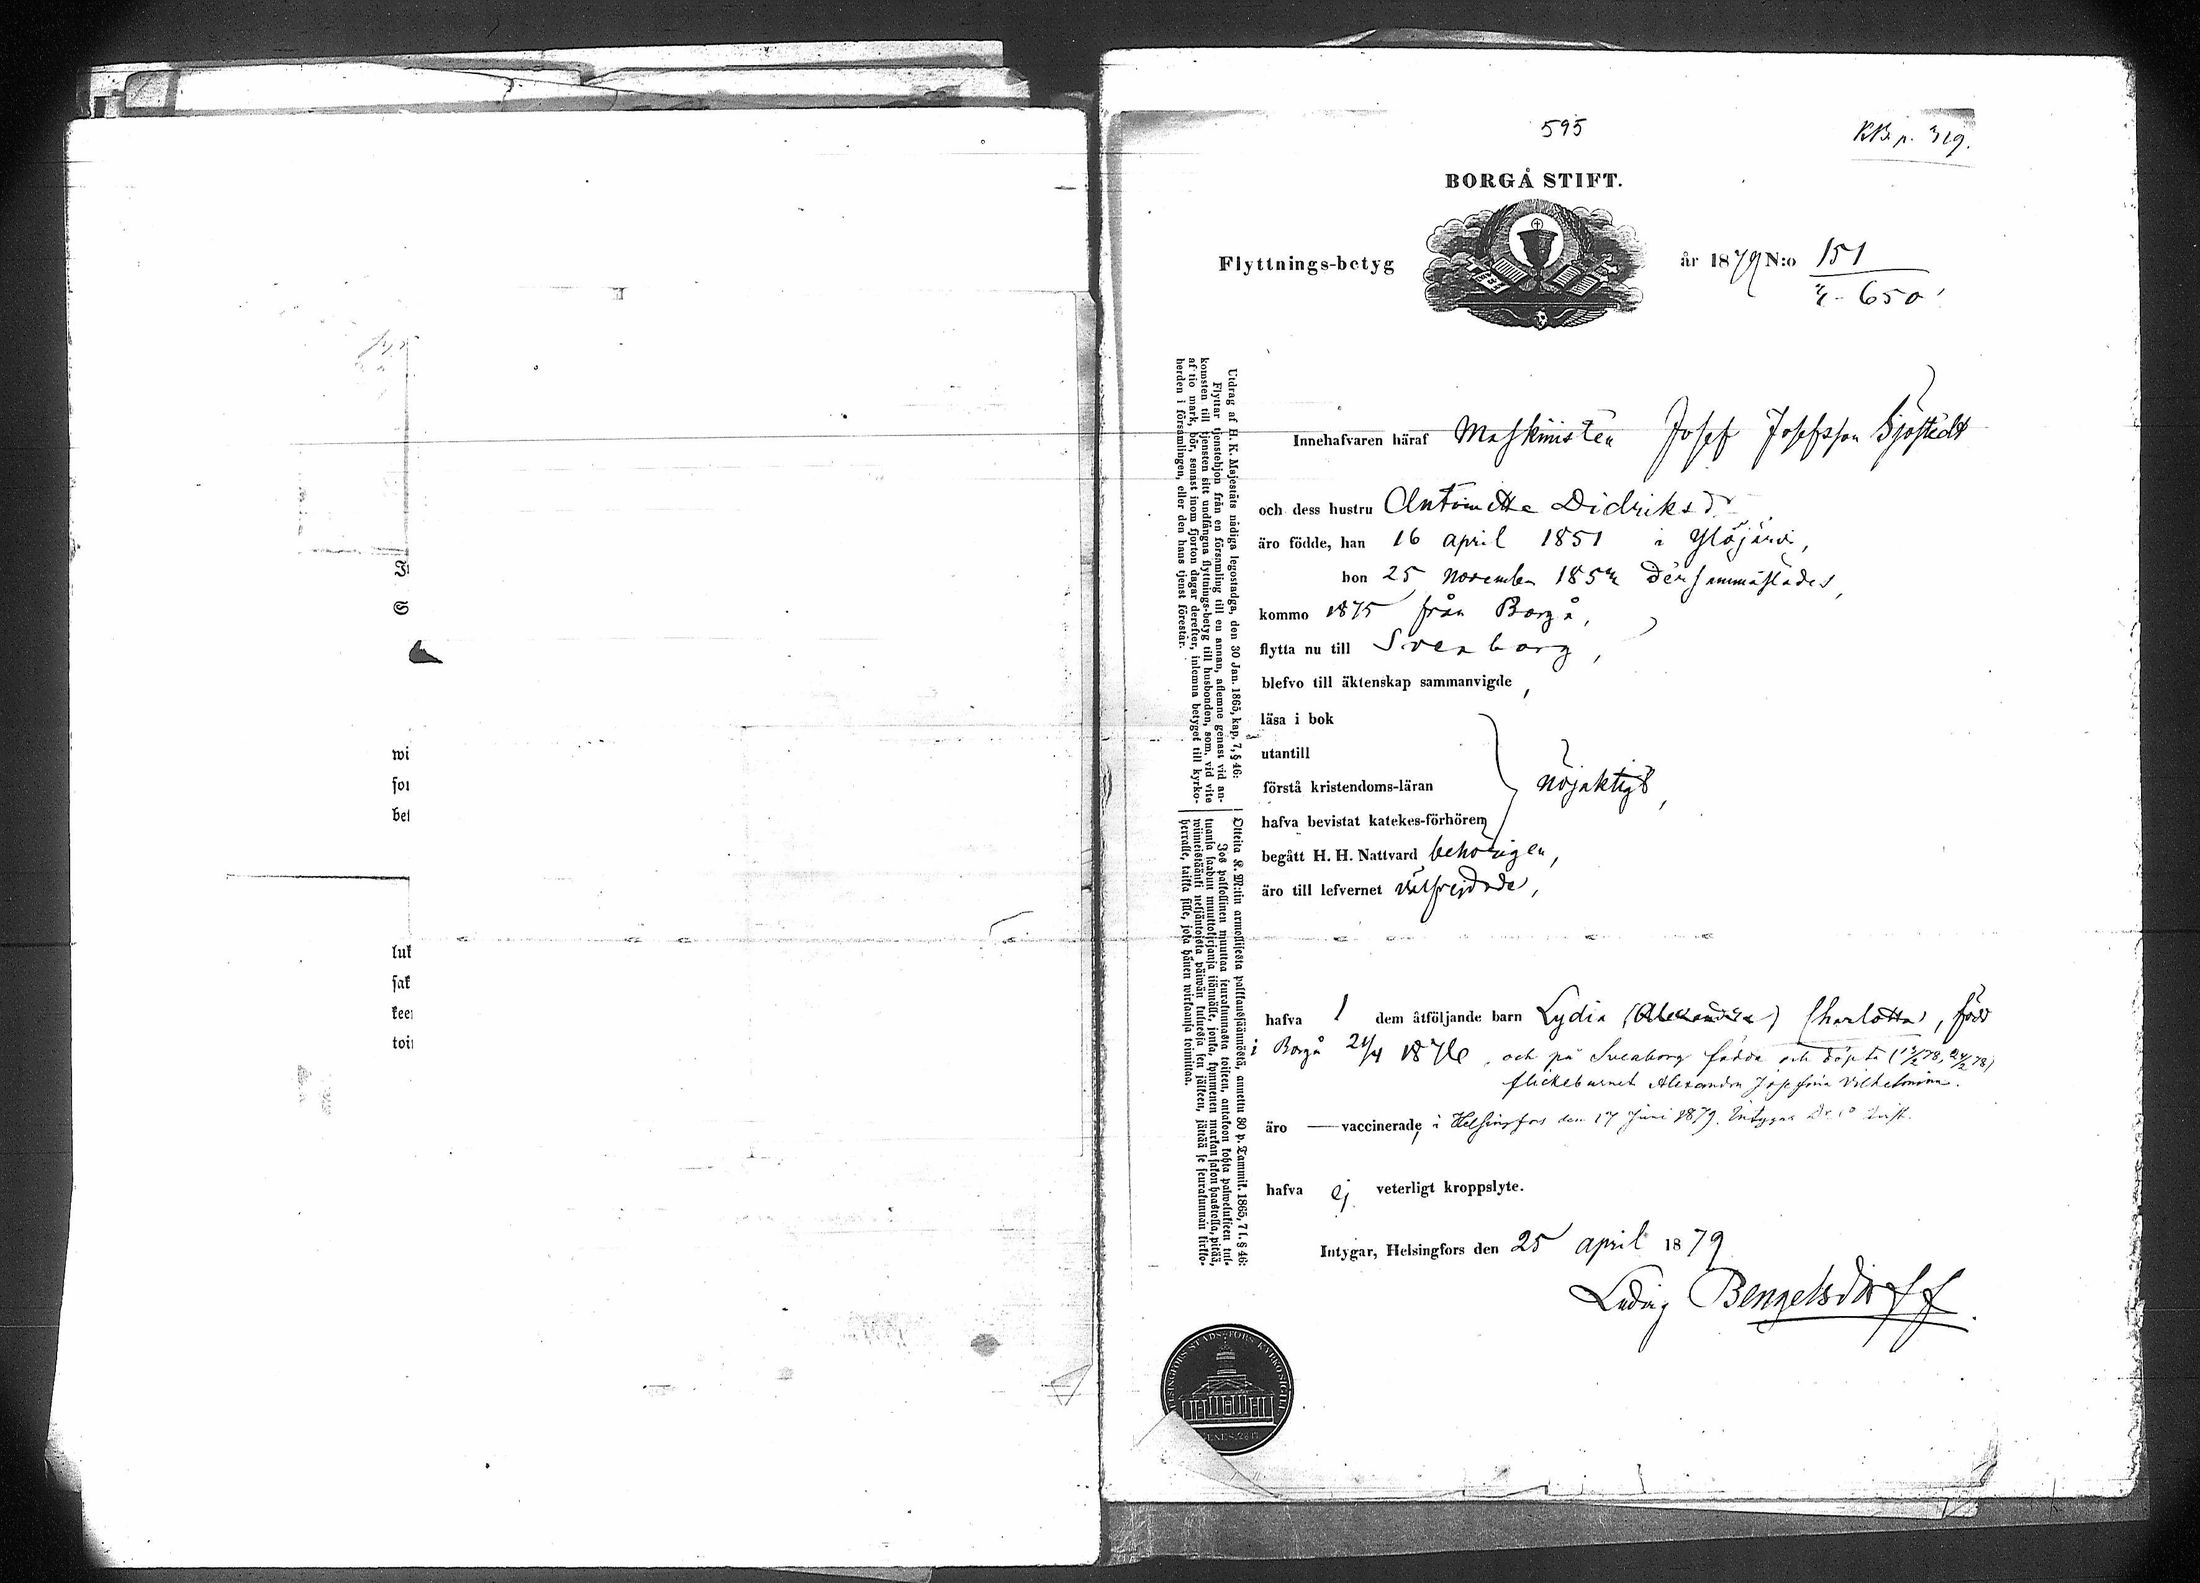 J
S
wi
for
bet
luk
sak
kee
toi
595
KB. p. 319.
BORGÅ STIFT.
Flyttnings-betyg
år 1879 N:o 151
650
Utdrag af H. K. Majestäts nådiga legostadga, den 30 Jan. 1865, kap. 7, § 46:
Flyttar tjenstehjon från en församling till en annan, aflemne genast vid an-
komsten till tjensten sitt undfångna flyttnings-betyg till husbonden, som, vid vite
af tio mark, bör, senast inom fjorton dagar derefter, inlemna betyget till kyrko-
herden i församlingen, eller den hans tjenst förestår.
Otteita K. M:tin armollisesta palkkaussäännöstä, annettu 30 p. Tammik. 1865, 7 l. § 46:
Jos palkollinen muuttaa seurakunnasta toiseen, antakoon kohta palwelukseen tul-
tuansa saadun muuttokirjansa isännälle, jonka, kymmenen markan sakon haastolla, pitää,
wiimeistäänki neljäntoista päiwän kuluessa sen jälkeen, jättää se seurakunnan kirkko-
herralle, taikka sille, jota hänen wirkaansa toimittaa.
Innehafvaren häraf Maskinisten Josef Josefsson Sjöstedt
och dess hustru Antoinette Didriksd.
äro födde, han 16 april 1851 i Ylöjärvi,
hon 25 november 185 dersammastädes,
kommo 1875 från Borgå,
flytta nu till Sveaborg,
blefvo till äktenskap sammanvigde,
läsa i bok
utantill
förstå kristendoms-läran nöjaktigt,
hafva bevistat katekes-förhören
begått H. H. Nattvard behörigen,
äro till lefvernet välfrejdade,
hafva 1 dem åtföljande barn Lydia (Alexandra) Charlotta, född
i Borgå 21/4 1876, och på Sveaborg födda och döpta
flickebarnet Alexandra Josefina Vilhelmina.
äro — vaccinerade, i Helsingfors den 17 Juni 1879.
hafva ej veterligt kroppslyte.
Intygar, Helsingfors den 25 april 1879
Ludvig Bengelsdorff
HELSINGFORS STADS-FÖRS. KYRKOSIGILL